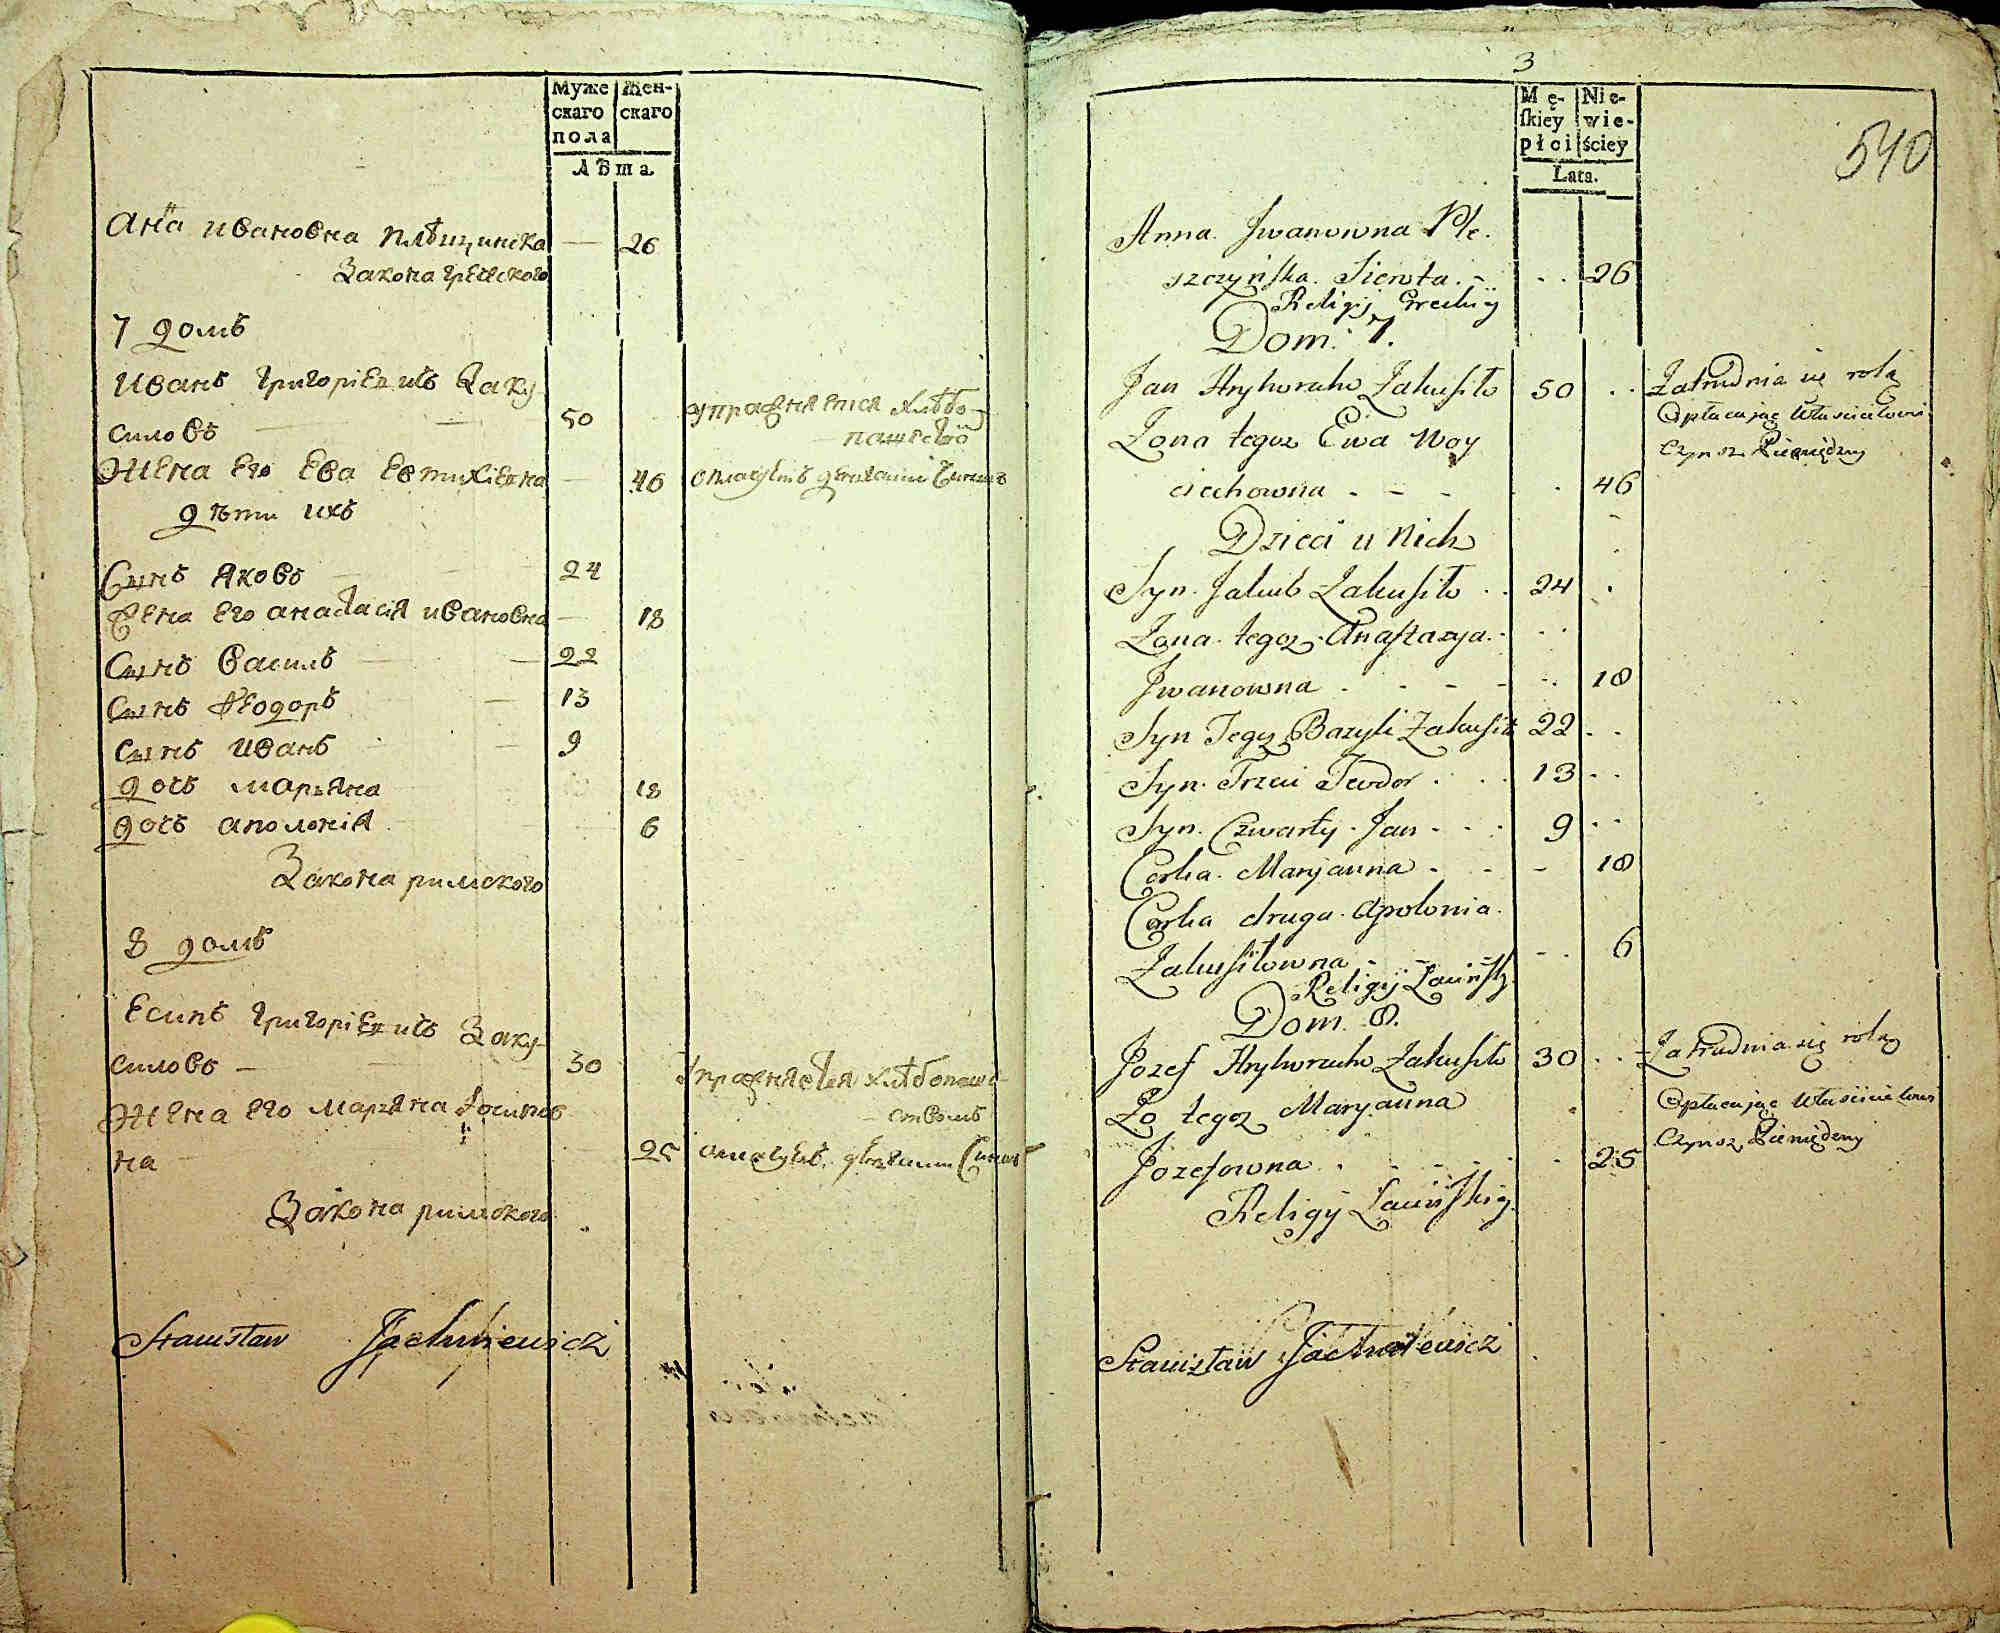 Муже
скаго
пола
Жен-
скаго
Лѣта.
Анна Ивановна Плѣщинска — 26
Закона греческого
7 домъ
Иванъ Григоріевичъ Заку-
силовъ 50 упражняется хлѣбо-
пашество
Жена его Ева Евтихіевна — 46 оплачуетъ денгами чиншъ
дѣти ихъ
Сынъ Яковъ 24
Жена его анастасія ивановна — 18
Сынъ Василъ 22
Сынъ Ѳеодоръ 13
Сынъ Иванъ 9
дочь марьяна 18
дочь аполонія 6
Закона римского
8 домъ
Есипъ Григоріевичъ Заку-
силовъ 30 Упражняется хлѣбопаше-
ствомъ
Жена его марьяна Iосипов
на 25
Закона римского
Stanisław Jachniewicz
3
540
Mę-
ſkiey
płci
Nie-
wie-
ściey
Lata.
Anna Jwanowna Ple-
szczyńska Sierota - . . 26
Religij Greckiy
Dom. 7.
Jan Hryhoracho Zakusiło 50 . . Zatrudnia się rolą
Opłacając Właścicielowi
Czynsz Pieniężny
Zona tegoz Ewa Woy
ciechowna . - - . . 46
Dzieci u Nich
Syn. Jakub Zakusiło . . 24 .
Zona tegoz Anastazya . . .
Jwanowna . - - - . . 18
Syn Tegoz Bazyli Zakusiło 22 . .
Syn. Trzeci Teodor . . . 13 . .
Syn. Czwarty. Jan . . . 9 . .
Corka Maryanna . - - 18
Corka druga Apolonia.
Zakusiłowna - - - . . 6
Religij Łacińsk.
Dom. 8.
Jozef Hryhoracho Zakusiło 30 . . Zatrudnia się rolą
Opłacając Właścicielowi
Czynsz Pieniężny
Zo tegoz Maryanna
Jozefowna . . . . . 25
Religij Łacińskiy.
Stanisław Jachniewicz